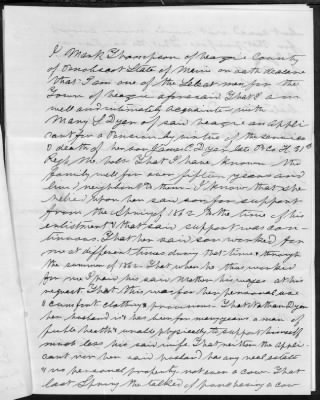 I Mark Thompson of Veazie County
of Penobscot State of Maine on oath declare
that I am one of the Select men for the
Town of Veazie aforesaid That I am
well and intimately acquainted with
Mary S Dyer of said Veazie an appli
cant for a Pension by virtue of the service
& death of her son James C Dyer late of Co H 31st
Regt Me Vols That I have known the
family well for over fifteen years and
lived neighbor to them I know that she
relied upon her said son for support
from the Spring of 1862 to the time of his
enlistment & that said support was con-
tinuous. That her said son worked for
me at different times during that time, through
the summer of 1862 That when he thus worked
for me I paid his said Mother his wages at his
request That this was for her personal use
& comfort clothing & provisions. That Nathan Dyer
her husband is & has been for many years a man of
feeble health & unable physically to support himself
much less his said wife That neither the appli
cant nor her said husband has any real estate
& no personal property not even a cow That
last Spring she talked of purchasing a cow